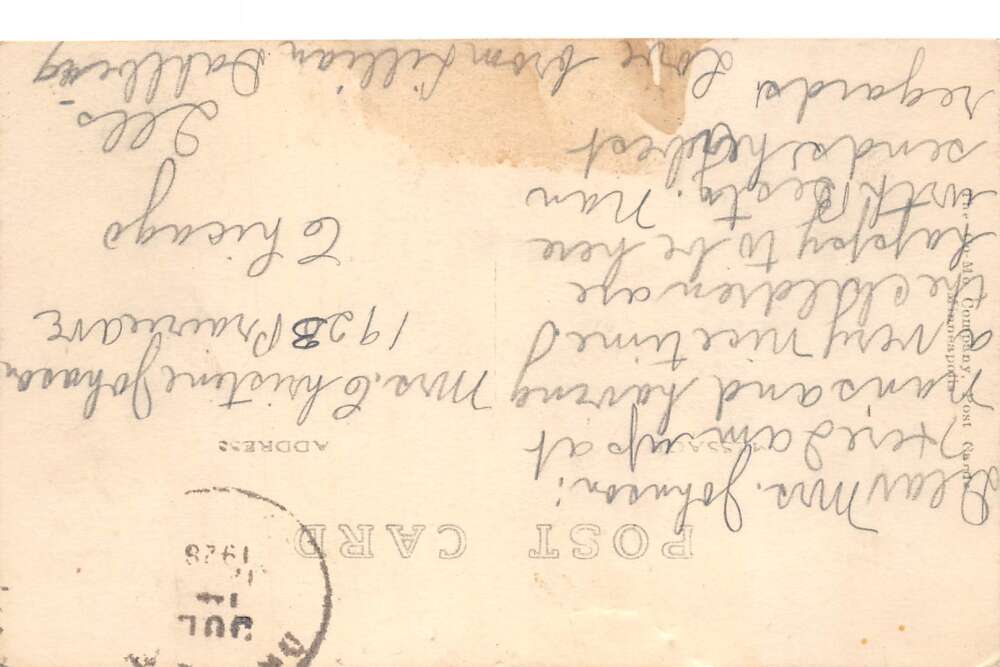 POST CARD
JUL
1928
MESSAGE
ADDRESS
Dear Mrs. Johnson;
Here I am up at
Nan's and having
a very nice time
the children are
happy to be here
with Besta. Nan
sends her best
regards. Love from Lillian Dahlberg
Mrs. Christine Johnson
1928 Prairie ave
Chicago
Ills-
Company, Post Cards
Minneapolis